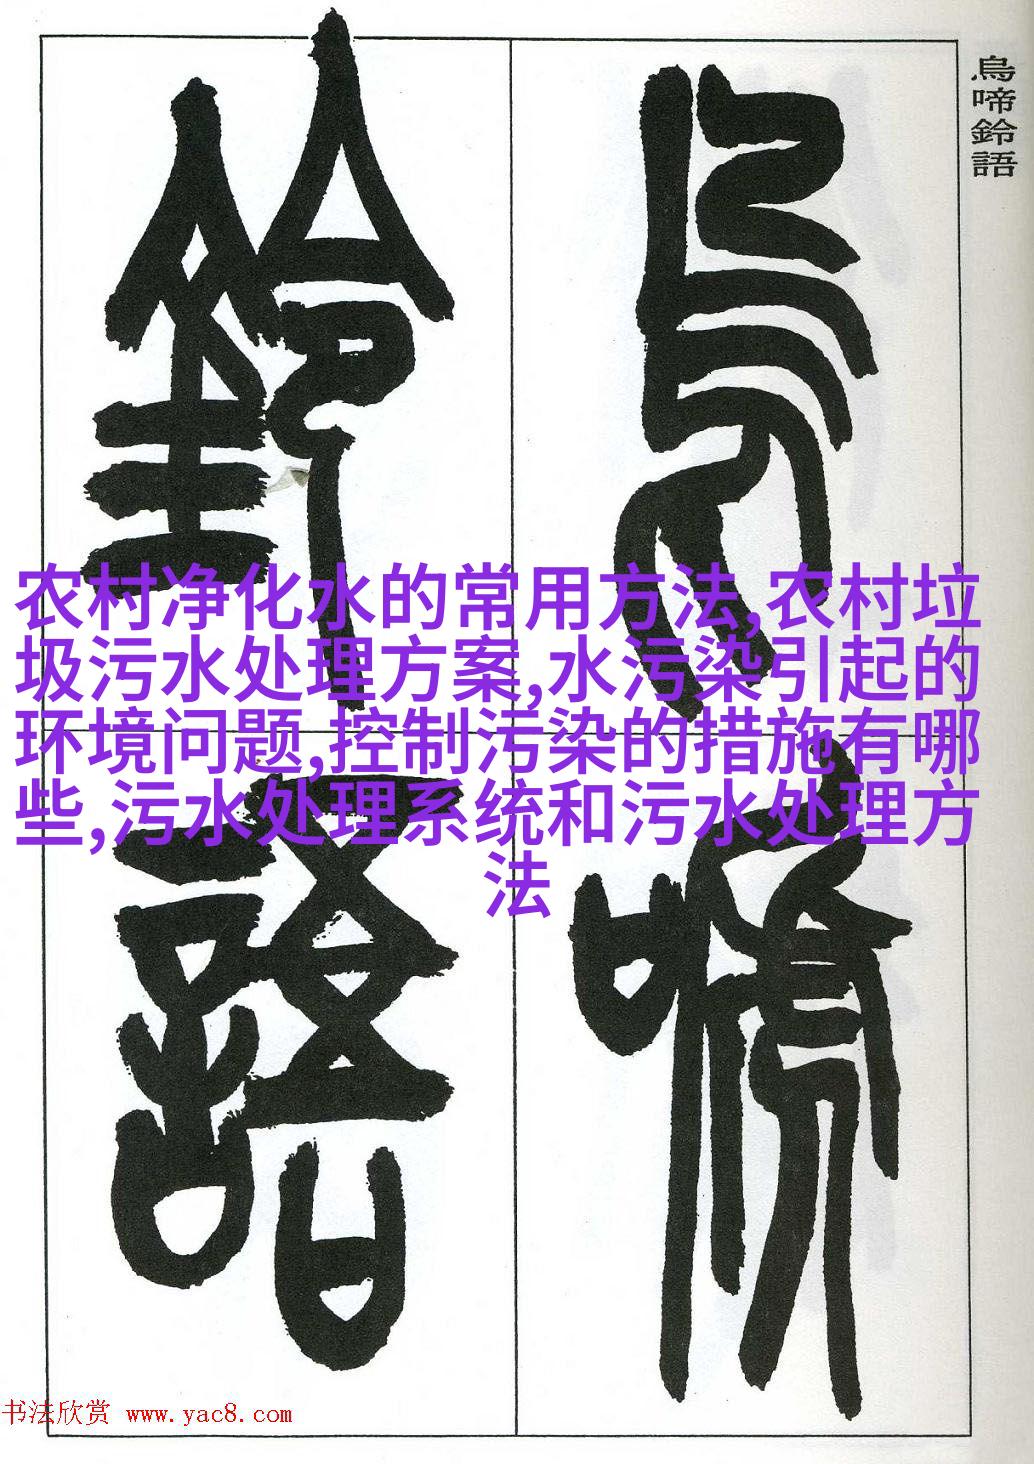 鳥啼鈴語
鳥
啼
鈴
語
农村净化水的常用方法,农村垃
圾污水处理方案,水污染引起的
环境问题,控制污染的措施有哪
些,污水处理系统和污水处理方
法
书法欣赏 www.yac8.com